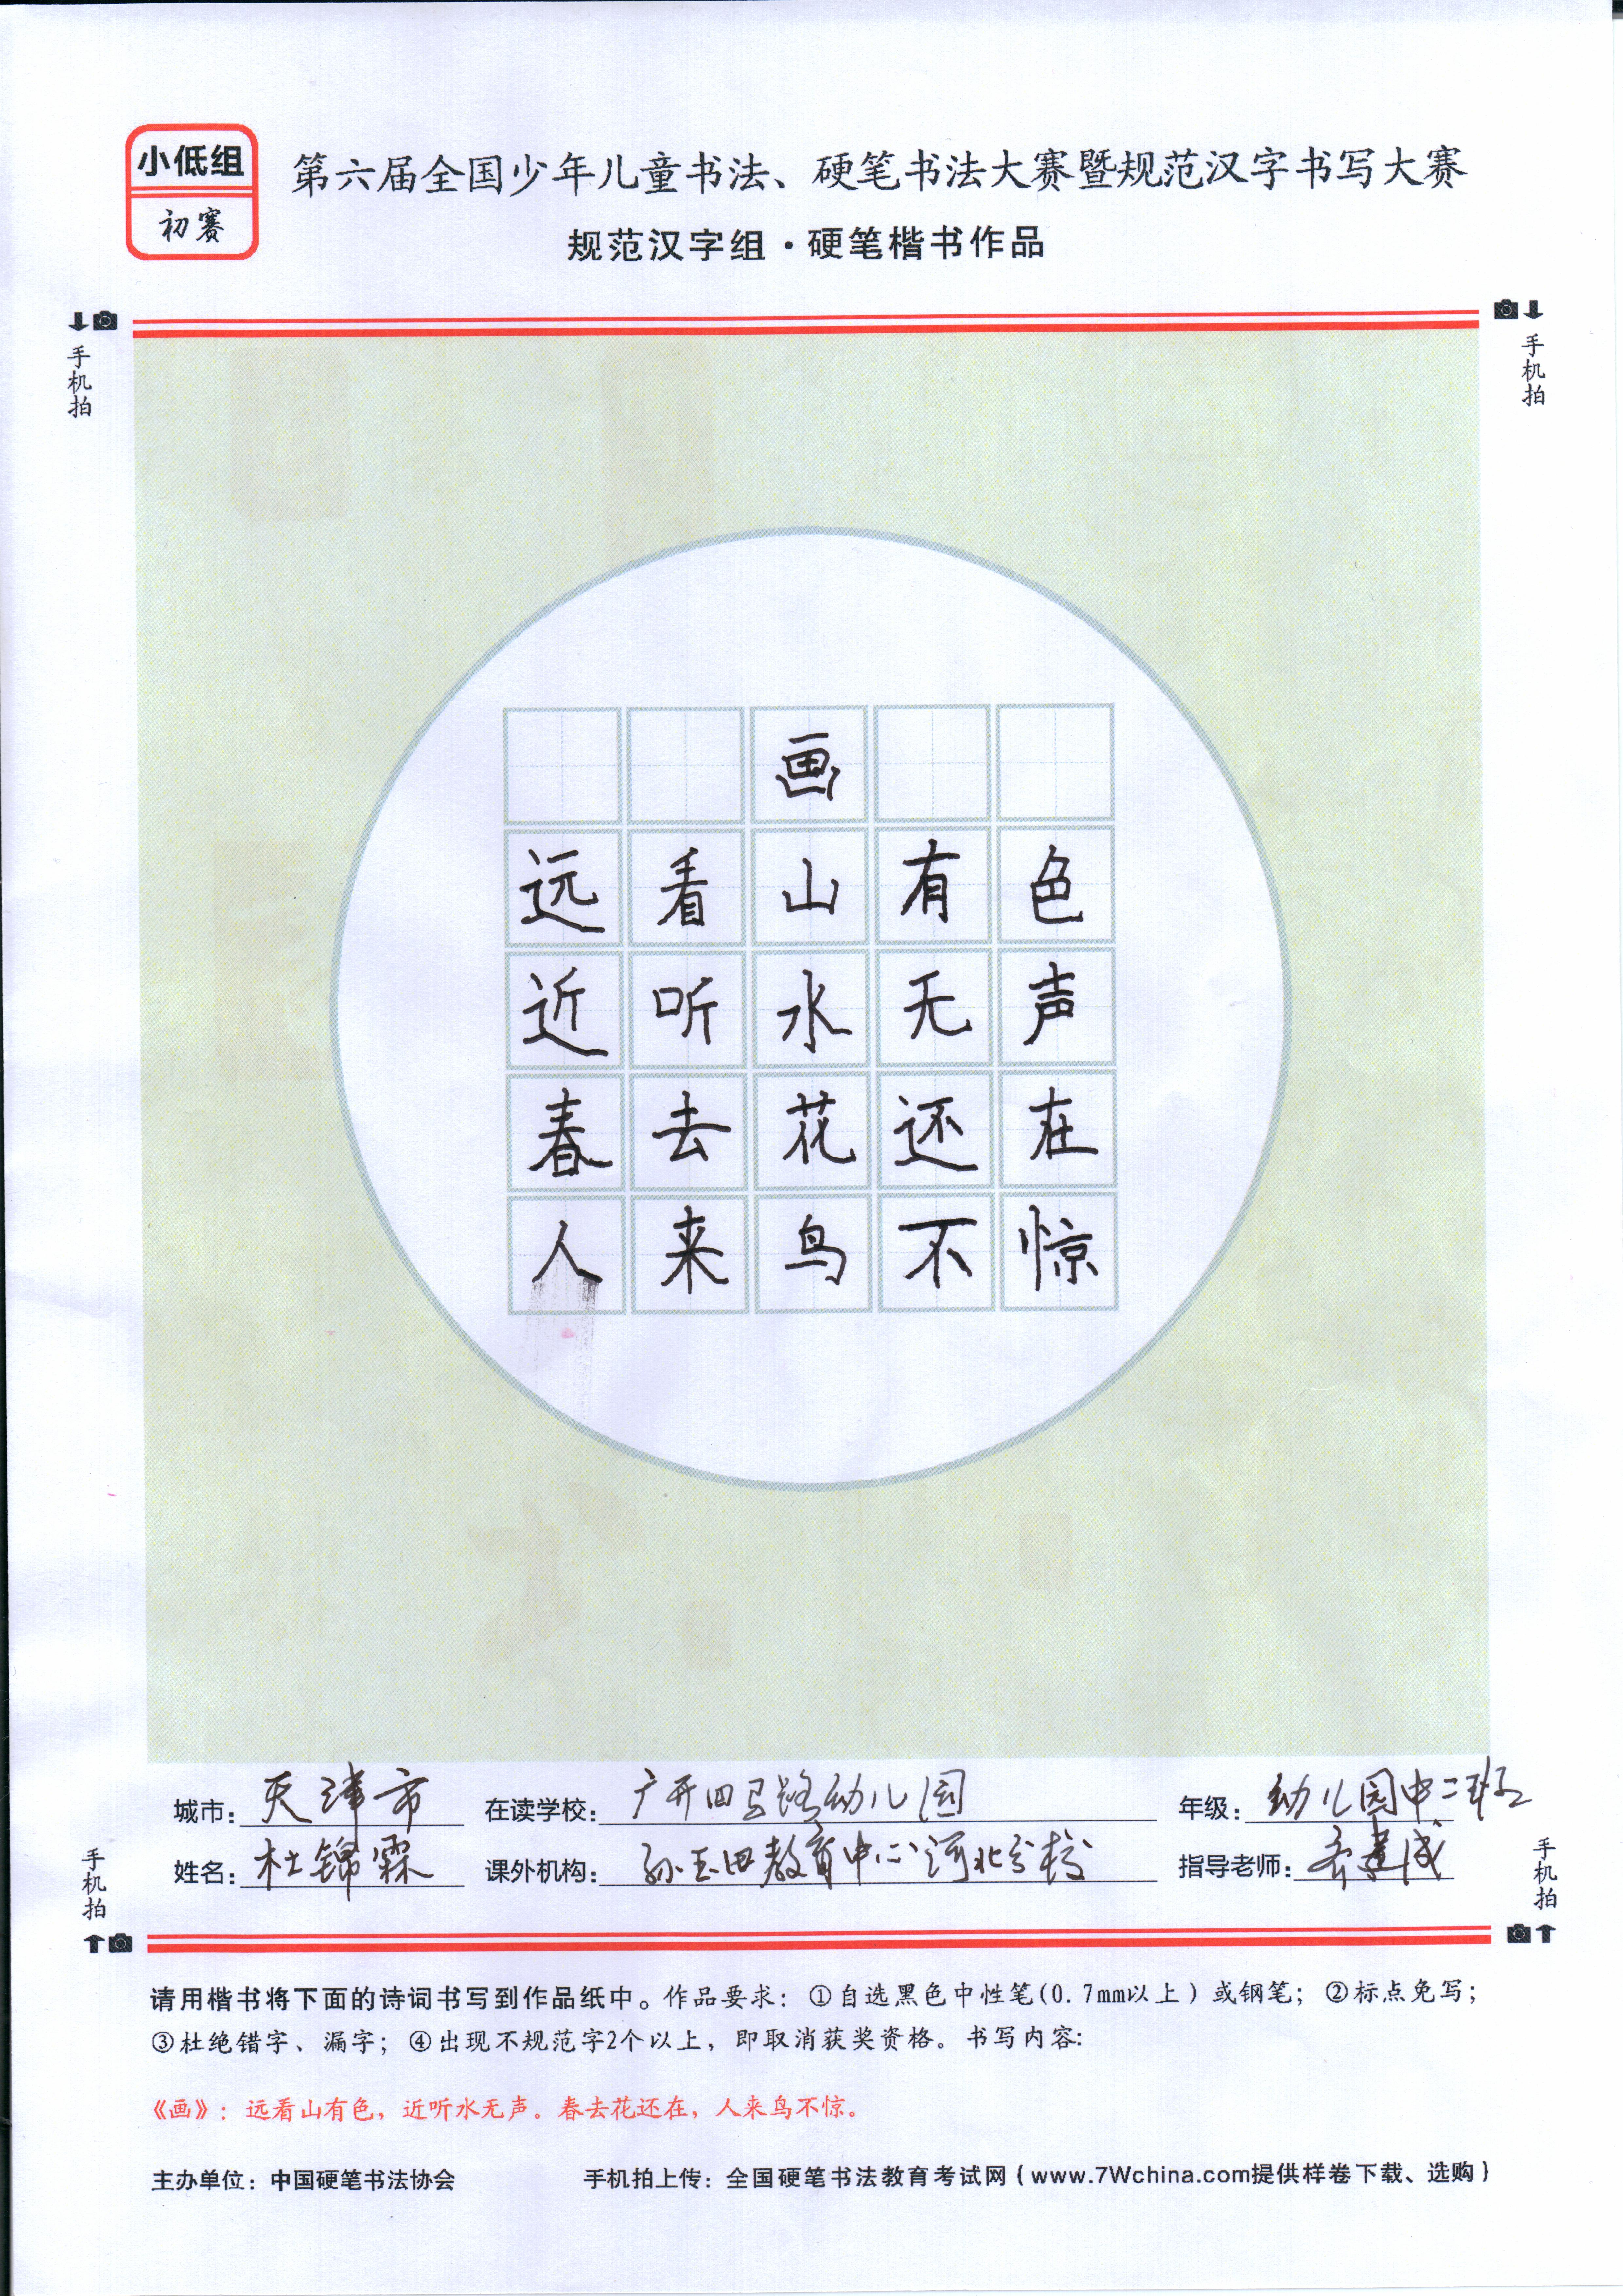 小低组
初赛
第六届全国少年儿童书法、硬笔书法大赛暨规范汉字书写大赛
规范汉字组·硬笔楷书作品
手机拍
手机拍
画
远看山有色
近听水无声
春去花还在
人来鸟不惊
城市：天津市 在读学校：广开四马路幼儿园 年级：幼儿园中二班
姓名：杜锦霖 课外机构：孙玉田教育中心河北分校 指导老师：乔建成
手机拍
手机拍
请用楷书将下面的诗词书写到作品纸中。作品要求：①自选黑色中性笔(0.7mm以上）或钢笔；②标点免写；
③杜绝错字、漏字；④出现不规范字2个以上，即取消获奖资格。书写内容:
《画》：远看山有色，近听水无声。春去花还在，人来鸟不惊。
主办单位：中国硬笔书法协会 手机拍上传：全国硬笔书法教育考试网（www.7Wchina.com提供样卷下载、选购）